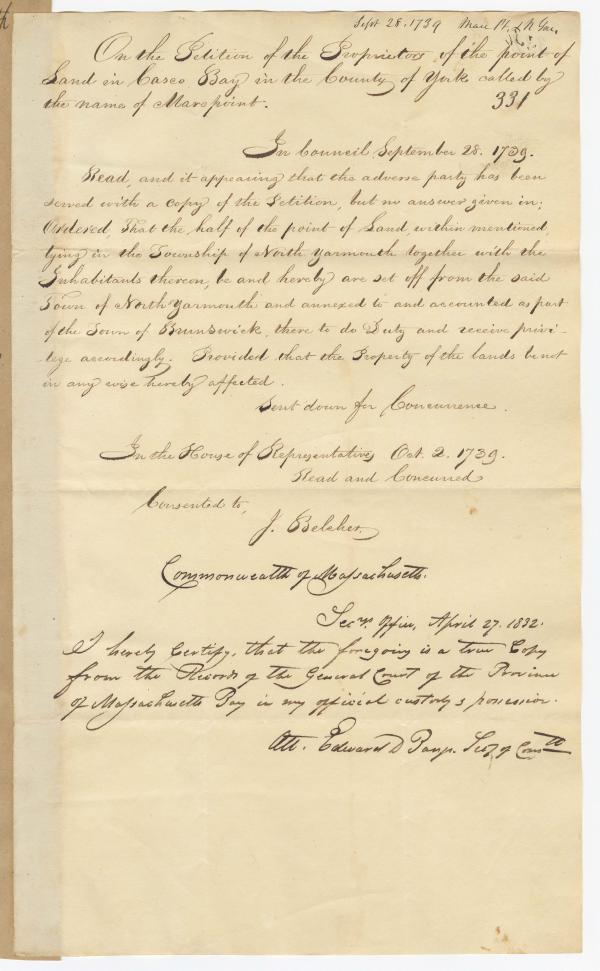 Sept 28. 1739 Mare Pt. & N Yar.
On the Petition of the Proprietors of the point of
Land in Casco Bay in the County of York called by
the name of Marepoint. 331
In Council September 28. 1739.
Read, and it appearing that the adverse party has been
served with a copy of the Petition, but no answer given in;
Ordered, That the half of the point of Land, within mentioned,
lying in the Township of North Yarmouth together with the
Inhabitants thereon, be and hereby are set off from the said
Town of North Yarmouth and annexed to and accounted as part
of the Town of Brunswick, there to do Duty and receive privi-
lege accordingly. Provided that the Property of the lands be not
in any wise hereby affected.
Sent down for Concurrence.
In the House of Representatives Oct. 2. 1739.
Read and Concurred
Consented to,
J. Belcher.
Commonwealth of Massachusetts.
Secy's. Office, April 27. 1832.
I hereby Certify, that the foregoing is a true Copy
from the Records of the General Court of the Province
of Massachusetts Bay in my official custody & possession.
Att. Edward D Bangs. Secy of Comtt